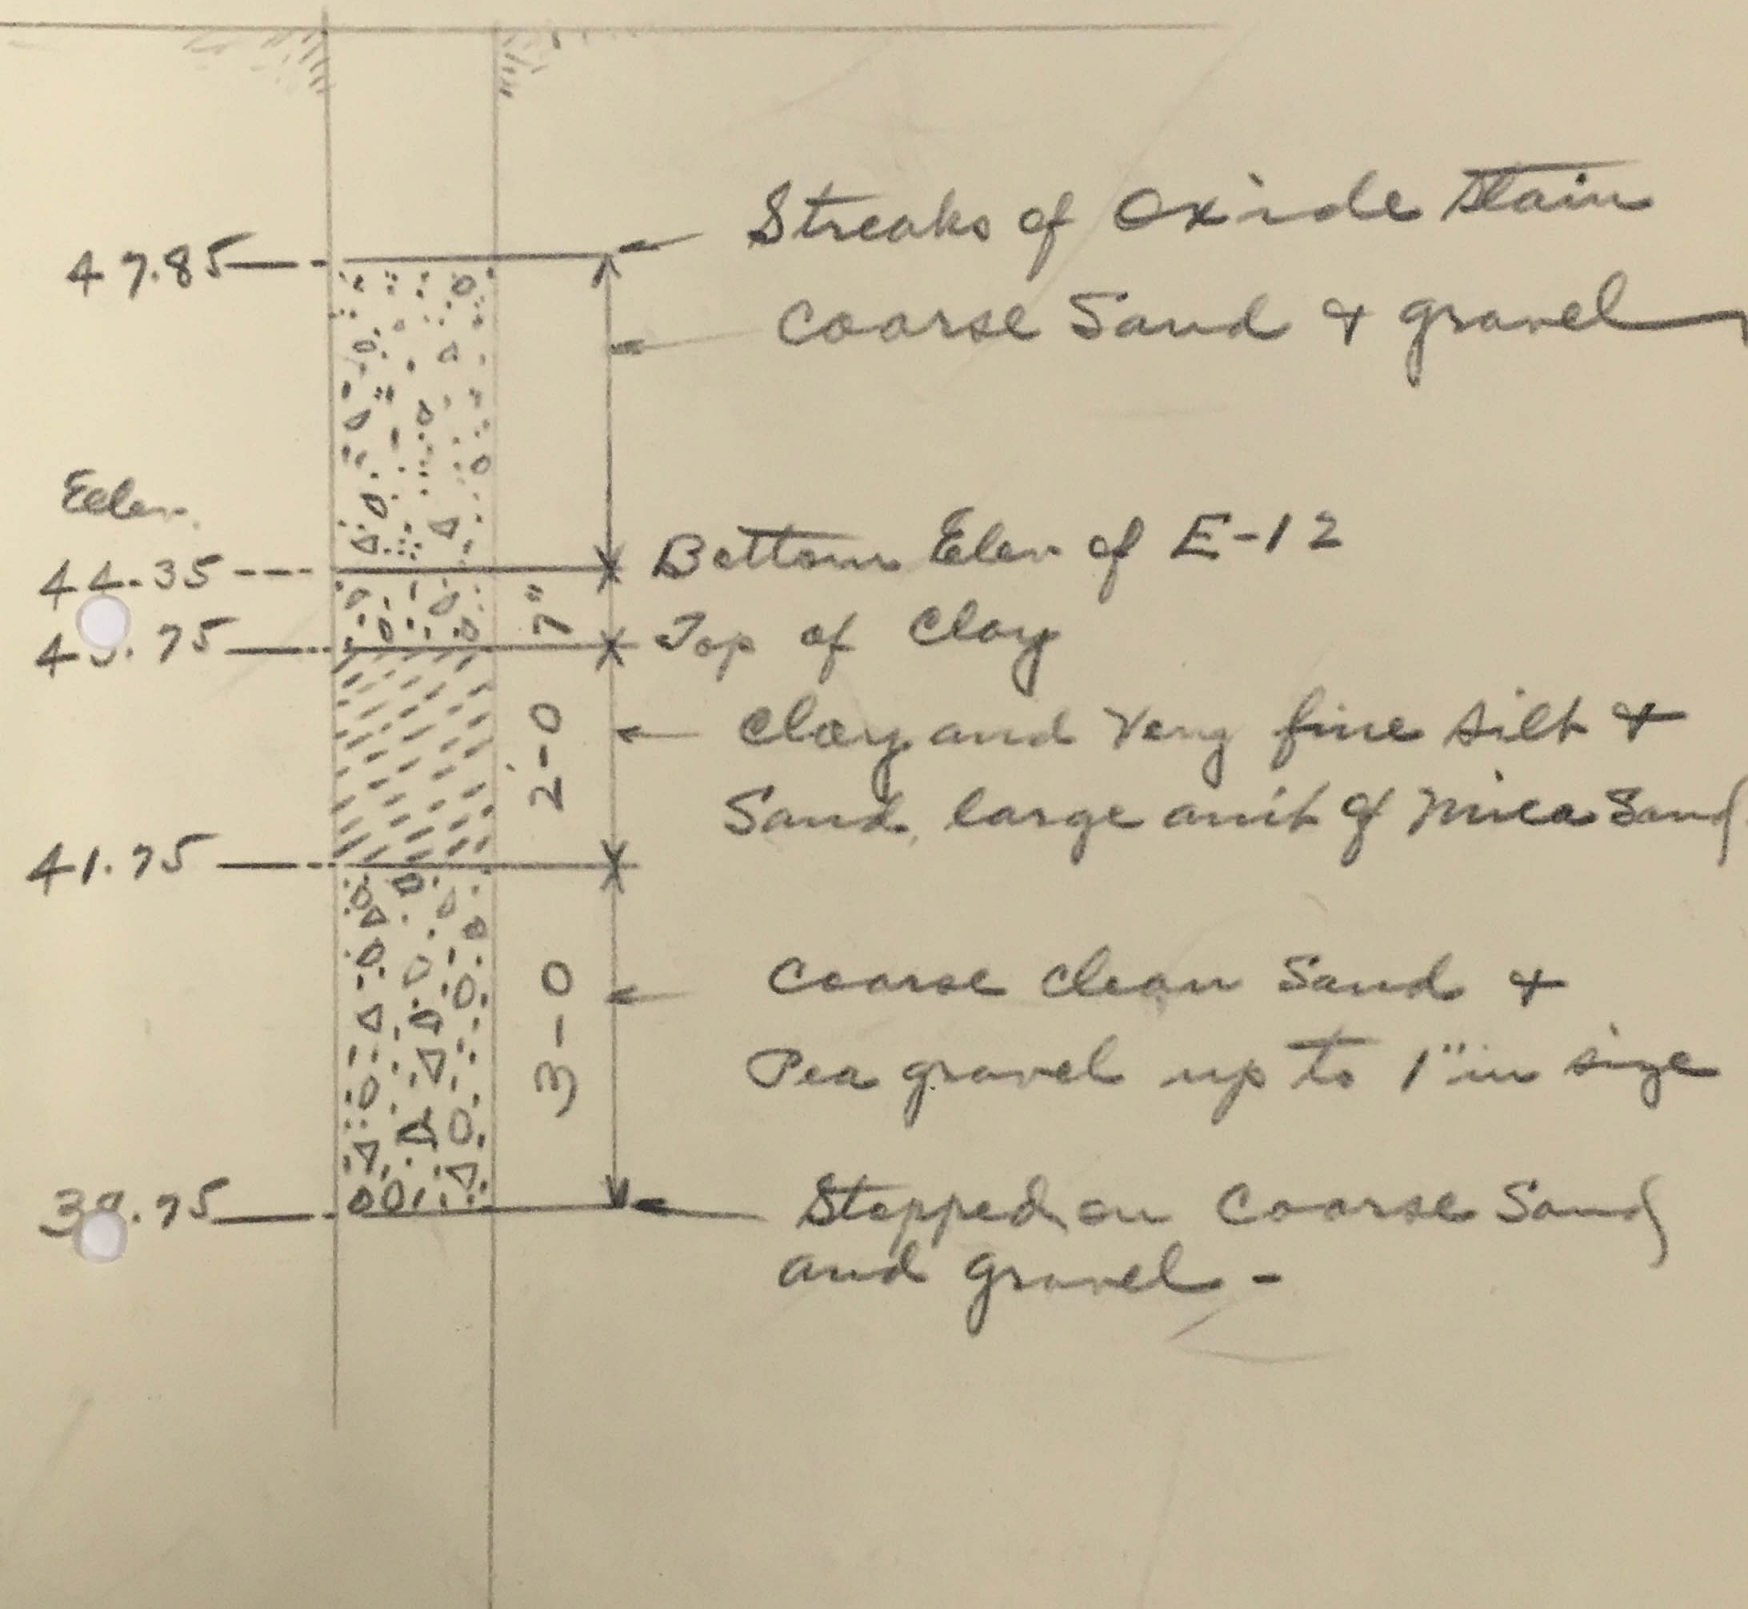 47.85
Streaks of Oxide Stain
Coarse Sand & gravel
Eelev.
44.35
Bottom Elev of E-12
7"
.75
Top of Clay
2-0
Clay and Very fine silt &
Sand, large amt of Mica Sand
41.75
3-0
Coarse clean Sand &
Pea gravel up to 1" in size
.75
Stopped on Coarse Sand
and gravel -